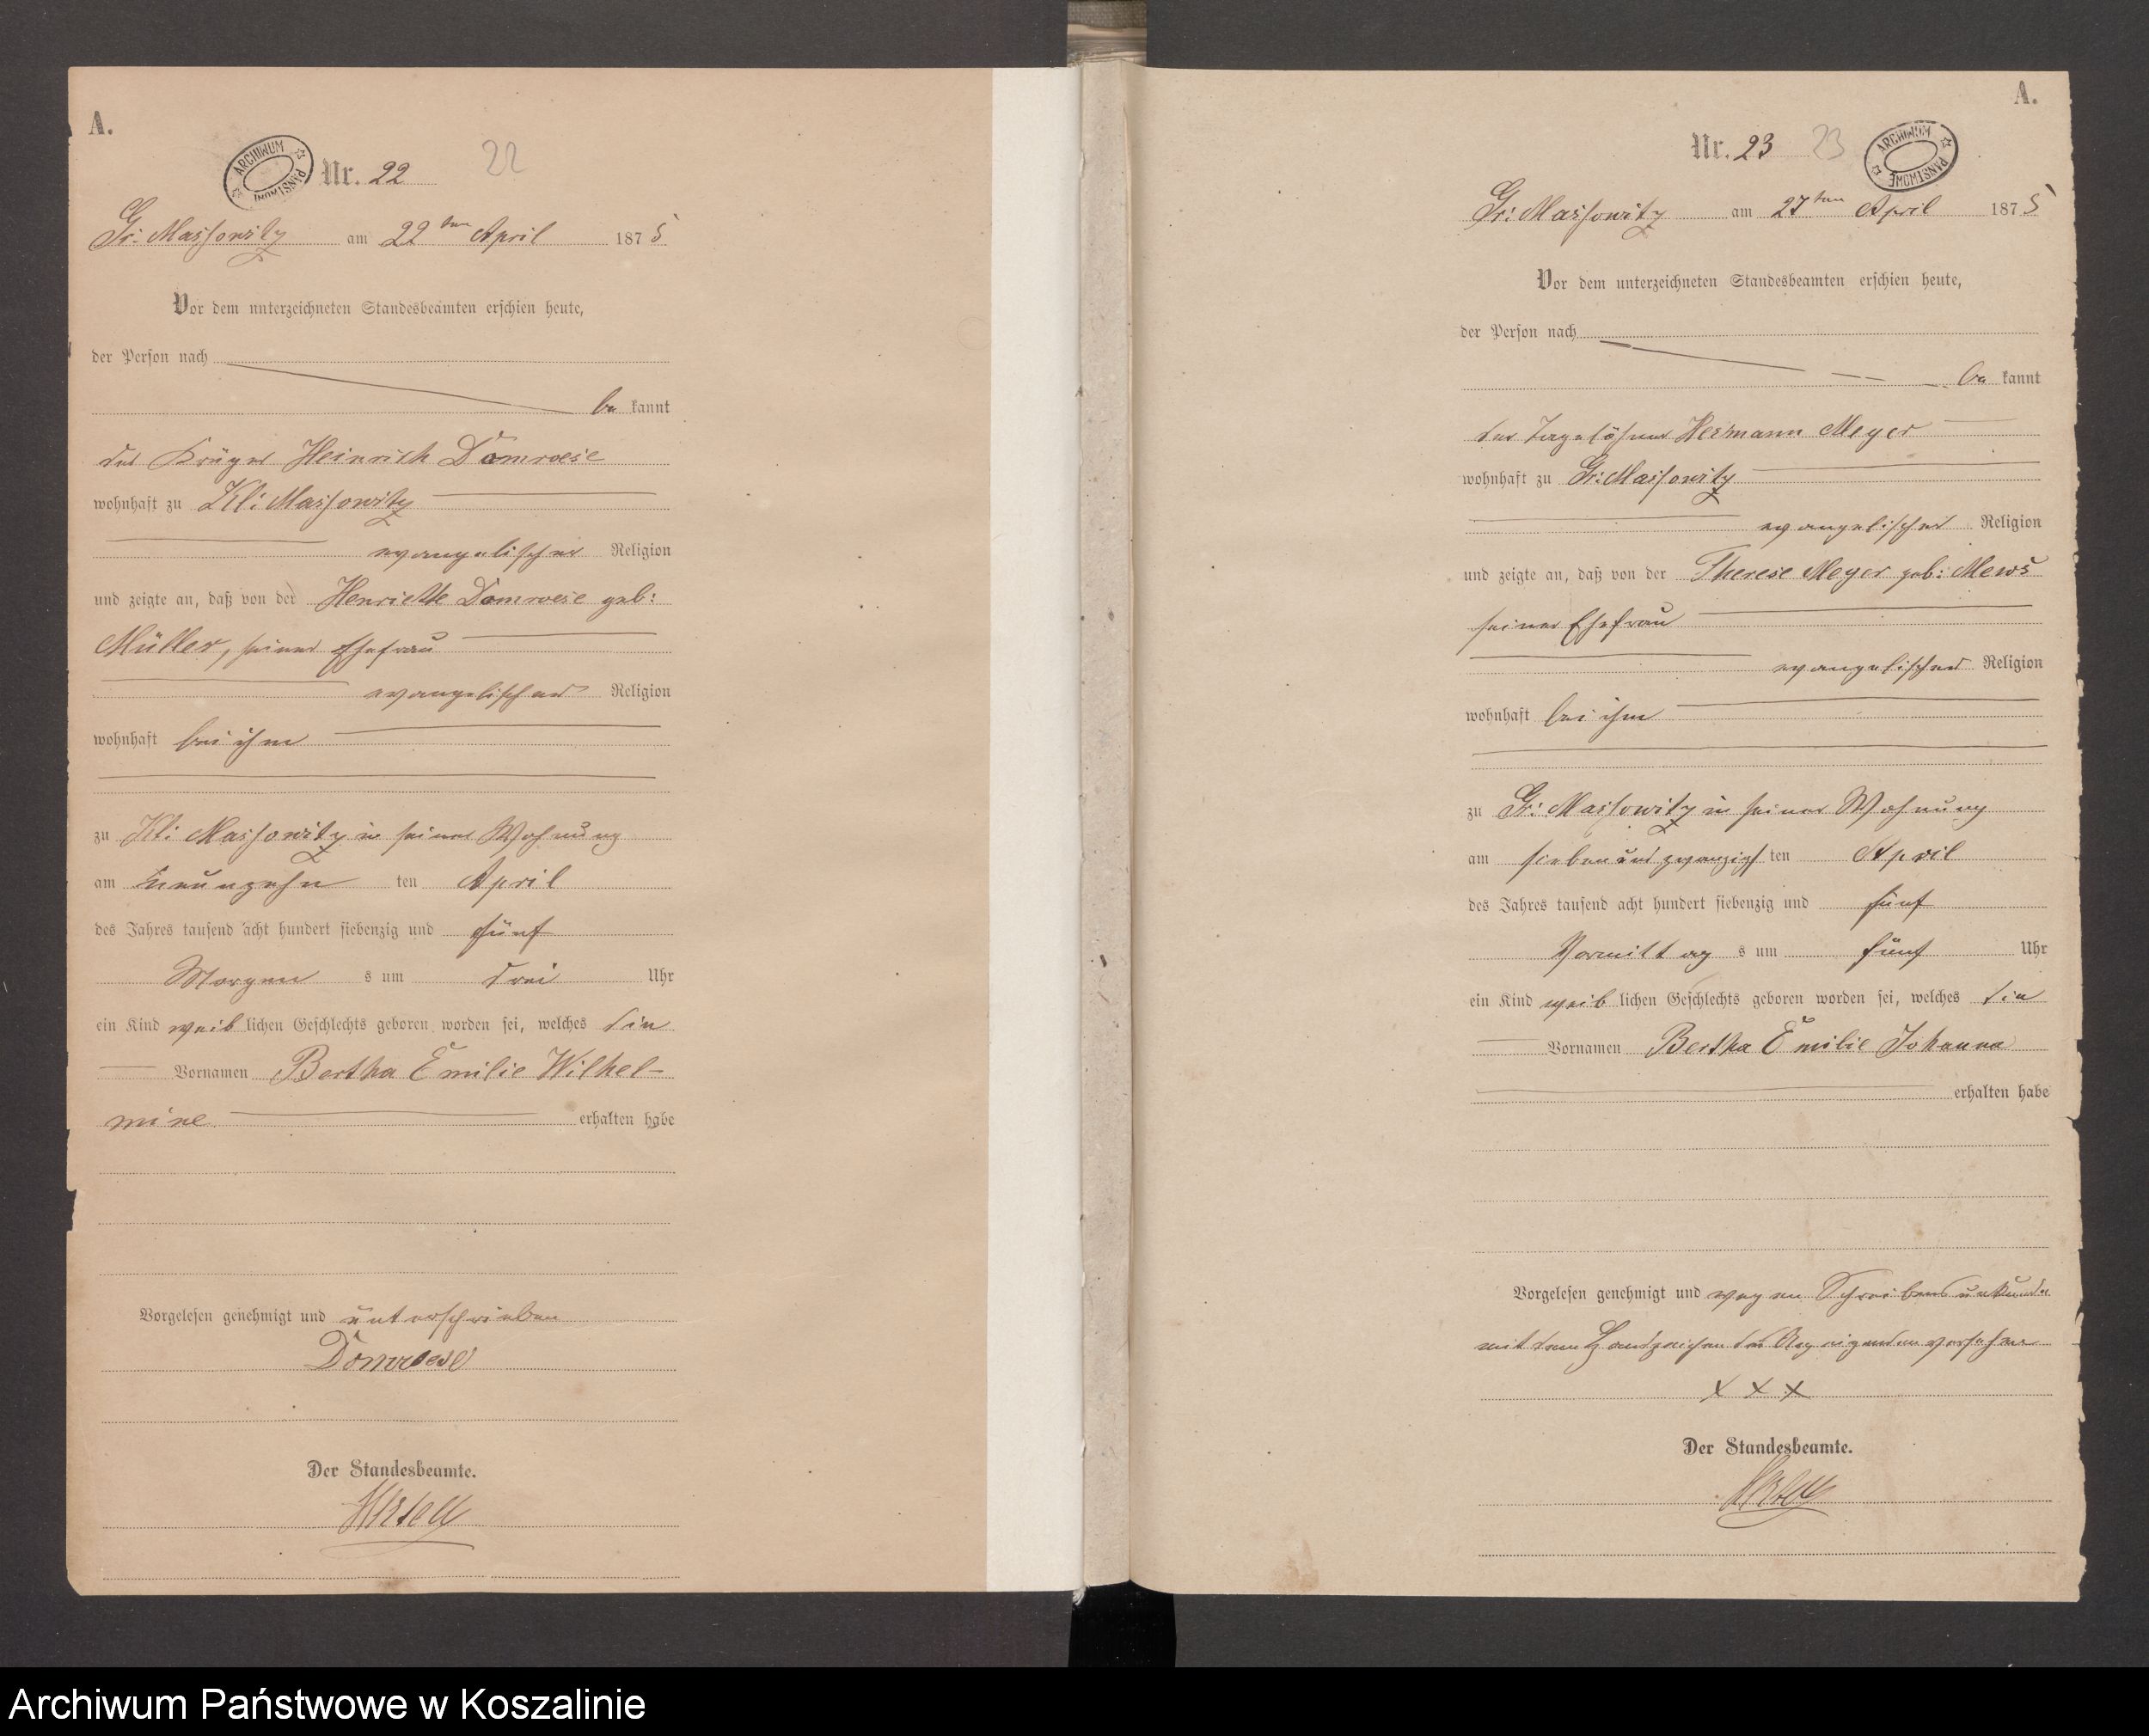 A.
ARCHIWUM PAŃSTWOWE
Nr. 22 22
Gr: Massowitz am 22ten April 1875
Vor dem unterzeichneten Standesbeamten erschien heute,
der Person nach
be kannt
der Krüger Heinrich Domroese
wohnhaft zu Kl: Massowitz
evangelischer Religion
und zeigte an, daß von der Henriette Domroese geb:
Müller, seiner Ehefrau
evangelischer Religion
wohnhaft bei ihm
zu Kl: Massowitz in seiner Wohnung
am neunzehn ten April
des Jahres tausend acht hundert siebenzig und fünf
Morgen s um drei Uhr
ein Kind weib lichen Geschlechts geboren worden sei, welches die
Vornamen Bertha Emilie Wilhel-
mine erhalten habe
Vorgelesen genehmigt und unterschrieben
Domroese
Der Standesbeamte.
A.
Nr. 23 23
ARCHIWUM PAŃSTWOWE
Gr: Massowitz am 27ten April 1875
Vor dem unterzeichneten Standesbeamten erschien heute,
der Person nach
be kannt
der Tagelöhner Hermann Meyer
wohnhaft zu Gr: Massowitz
evangelischer Religion
und zeigte an, daß von der Therese Meyer geb: Mews
seiner Ehefrau
evangelischer Religion
wohnhaft bei ihm
zu Gr: Massowitz in seiner Wohnung
am siebenundzwanzigs ten April
des Jahres tausend acht hundert siebenzig und fünf
Vormittag s um fünf Uhr
ein Kind weib lichen Geschlechts geboren worden sei, welches die
Vornamen Bertha Emilie Johanna
erhalten habe
Vorgelesen genehmigt und wegen Schreibensunkunde
mit dem Handzeichen des Anzeigenden versehen
x x x
Der Standesbeamte.
Archiwum Państwowe w Koszalinie